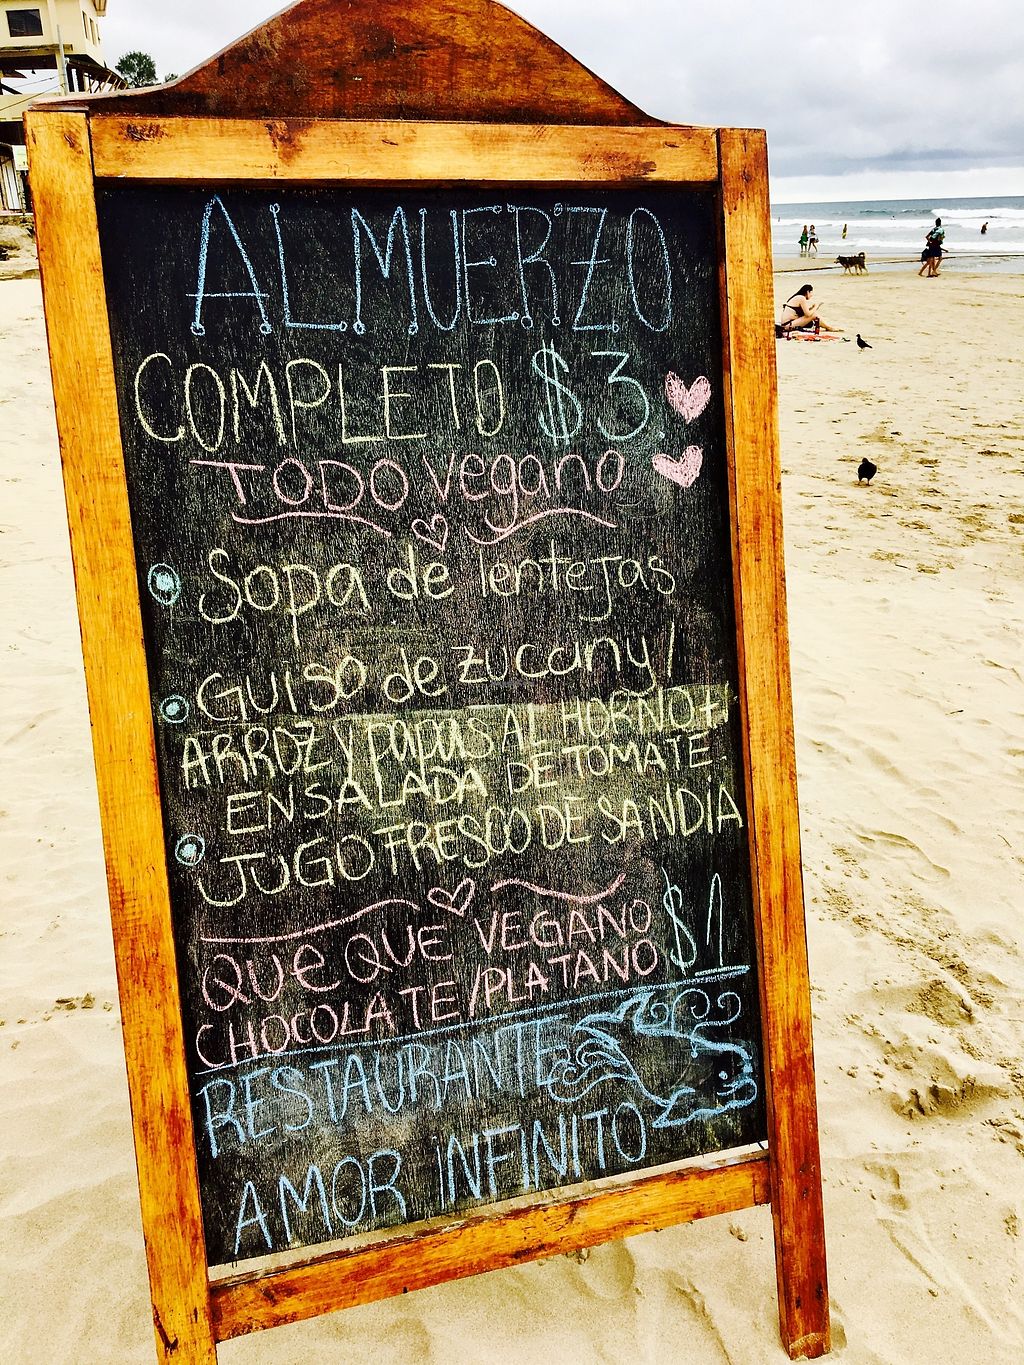 ALMUERZO
COMPLETO $3.
TODO vegano
Sopa de lentejas
Guiso de zucany/
ARROZ y papas AL HORNO +
ENSALADA DE TOMATE.
JUGO FRESCO DE SANDIA
QUE QUE VEGANO $1
CHOCOLATE/PLATANO
RESTAURANTE
AMOR INFINITO